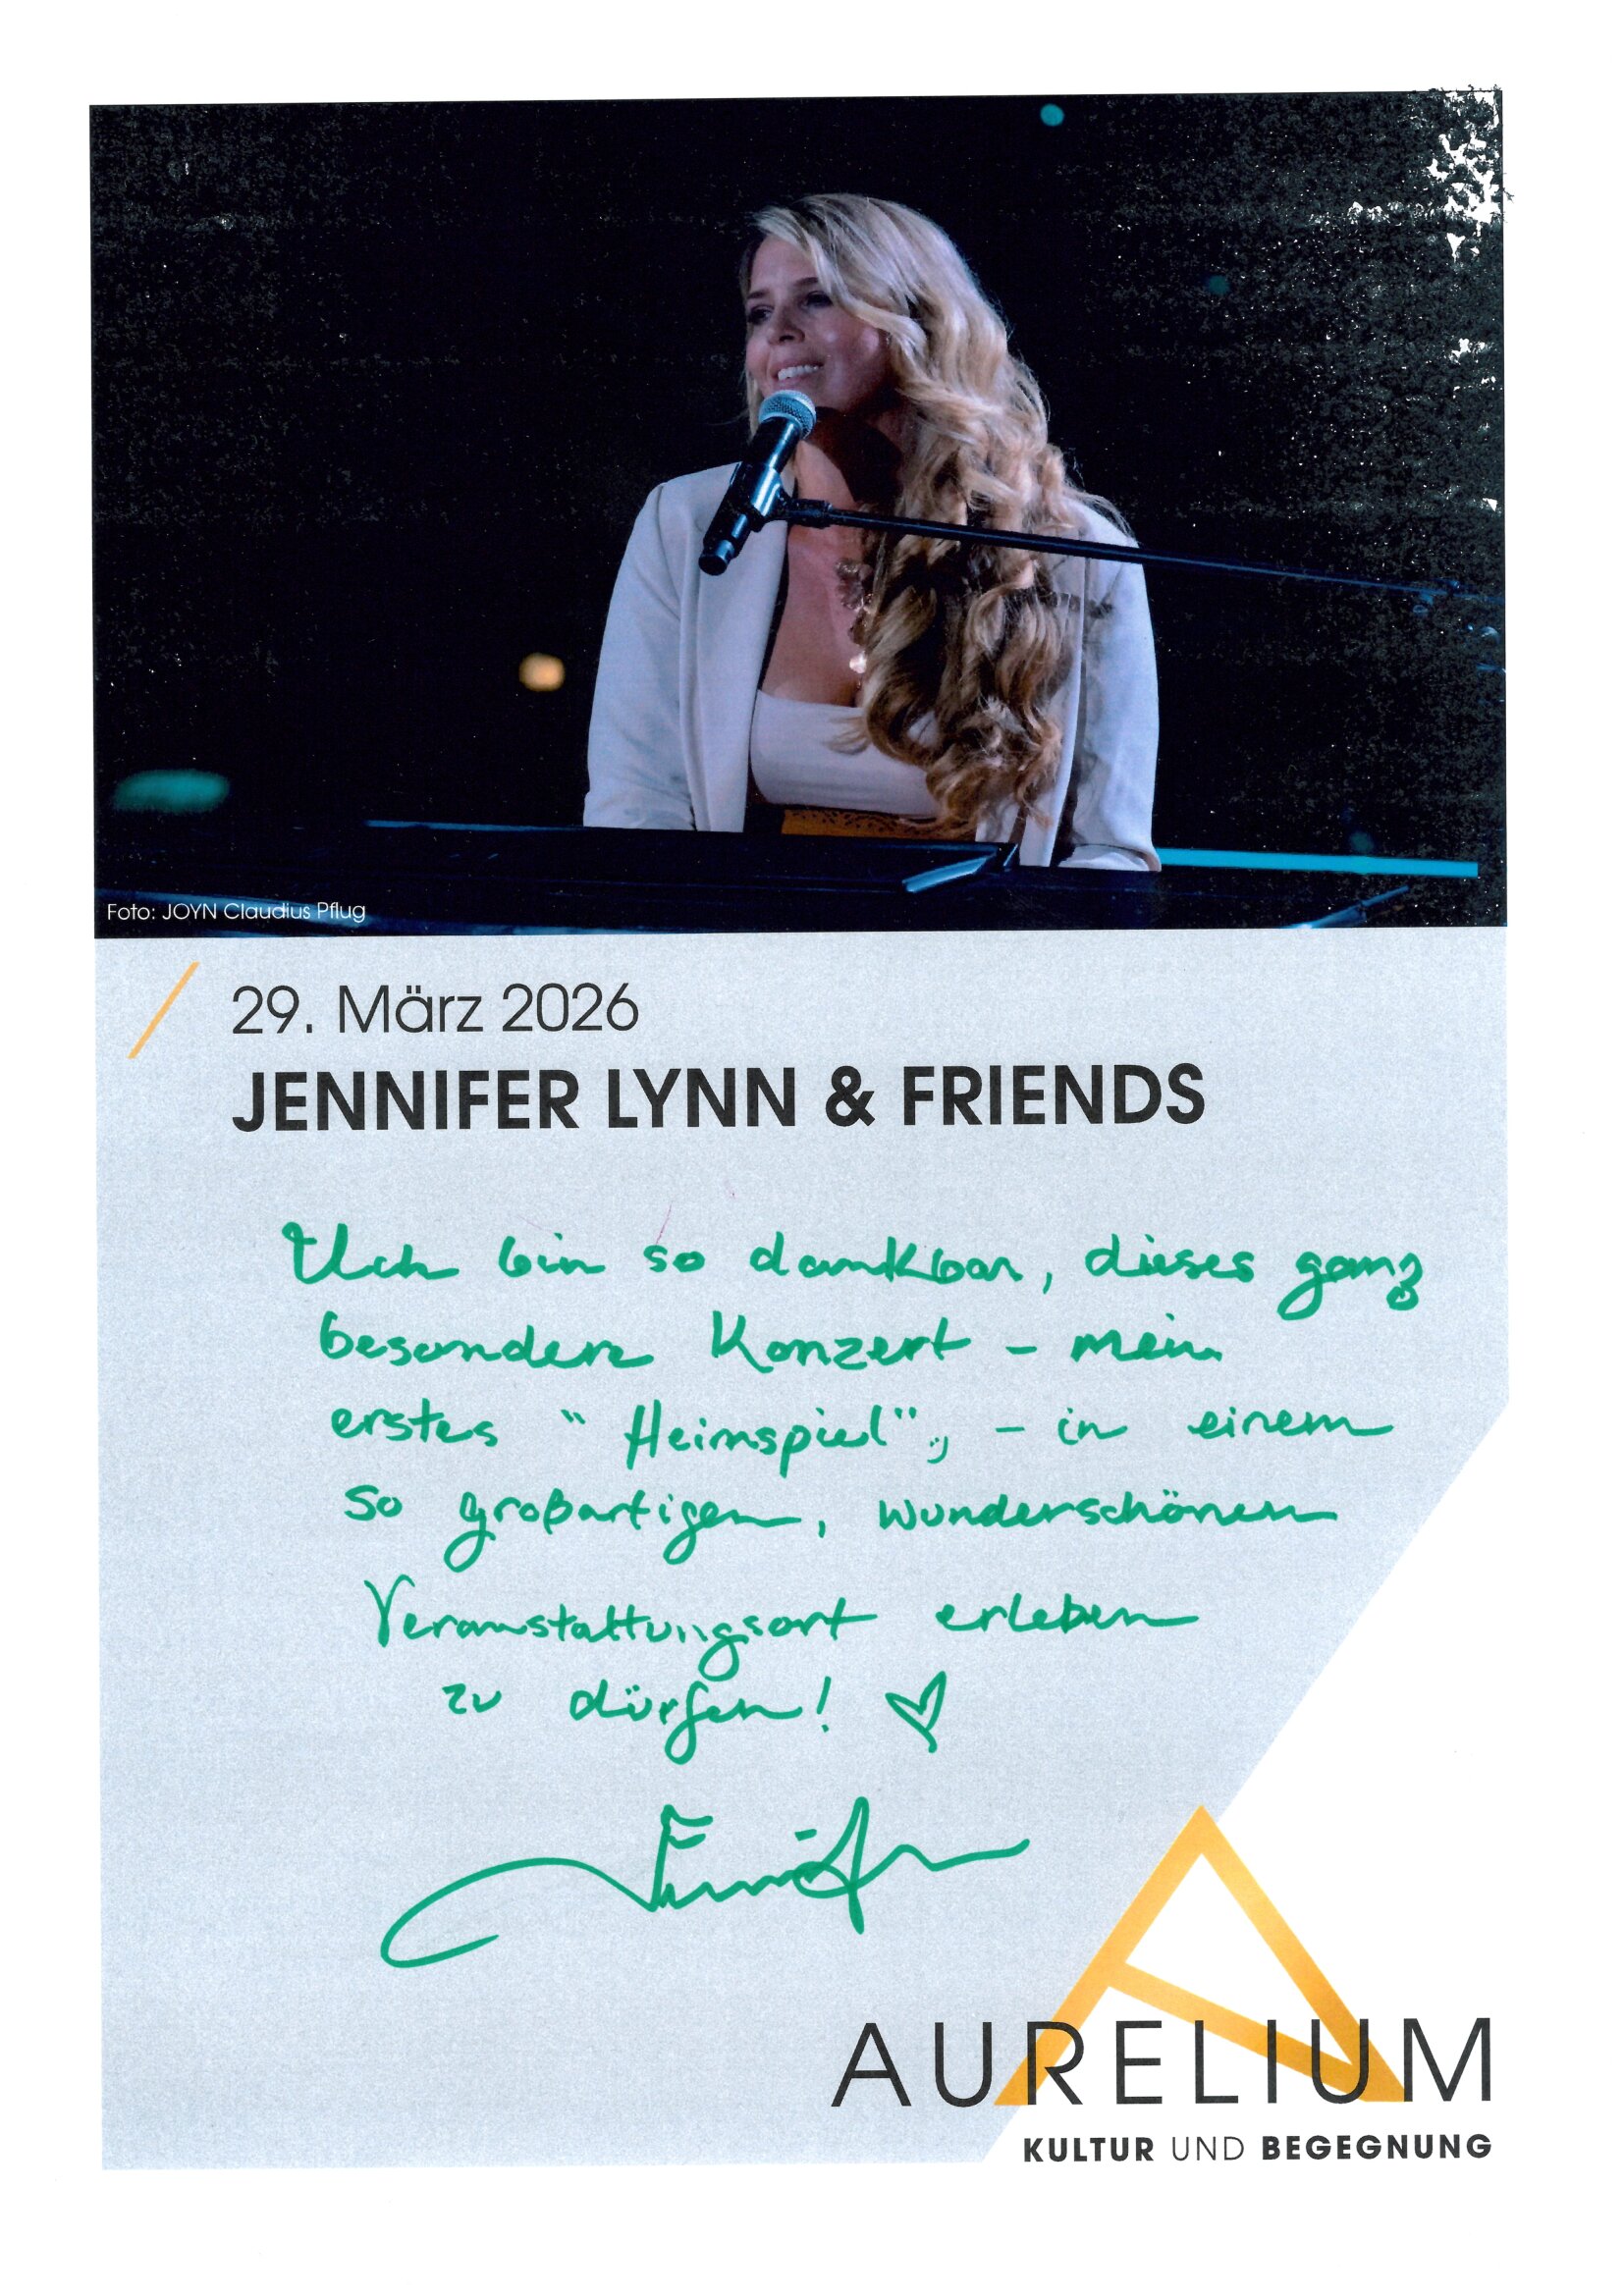 Foto: JOYN Claudius Pflug
29. März 2026
JENNIFER LYNN & FRIENDS
Ich bin so dankbar, dieses ganz
besondere Konzert – mein
erstes "Heimspiel", – in einem
so großartigen, wunderschönen
Veranstaltungsort erleben
zu dürfen! ♡
Jennifer
AURELIUM
KULTUR UND BEGEGNUNG